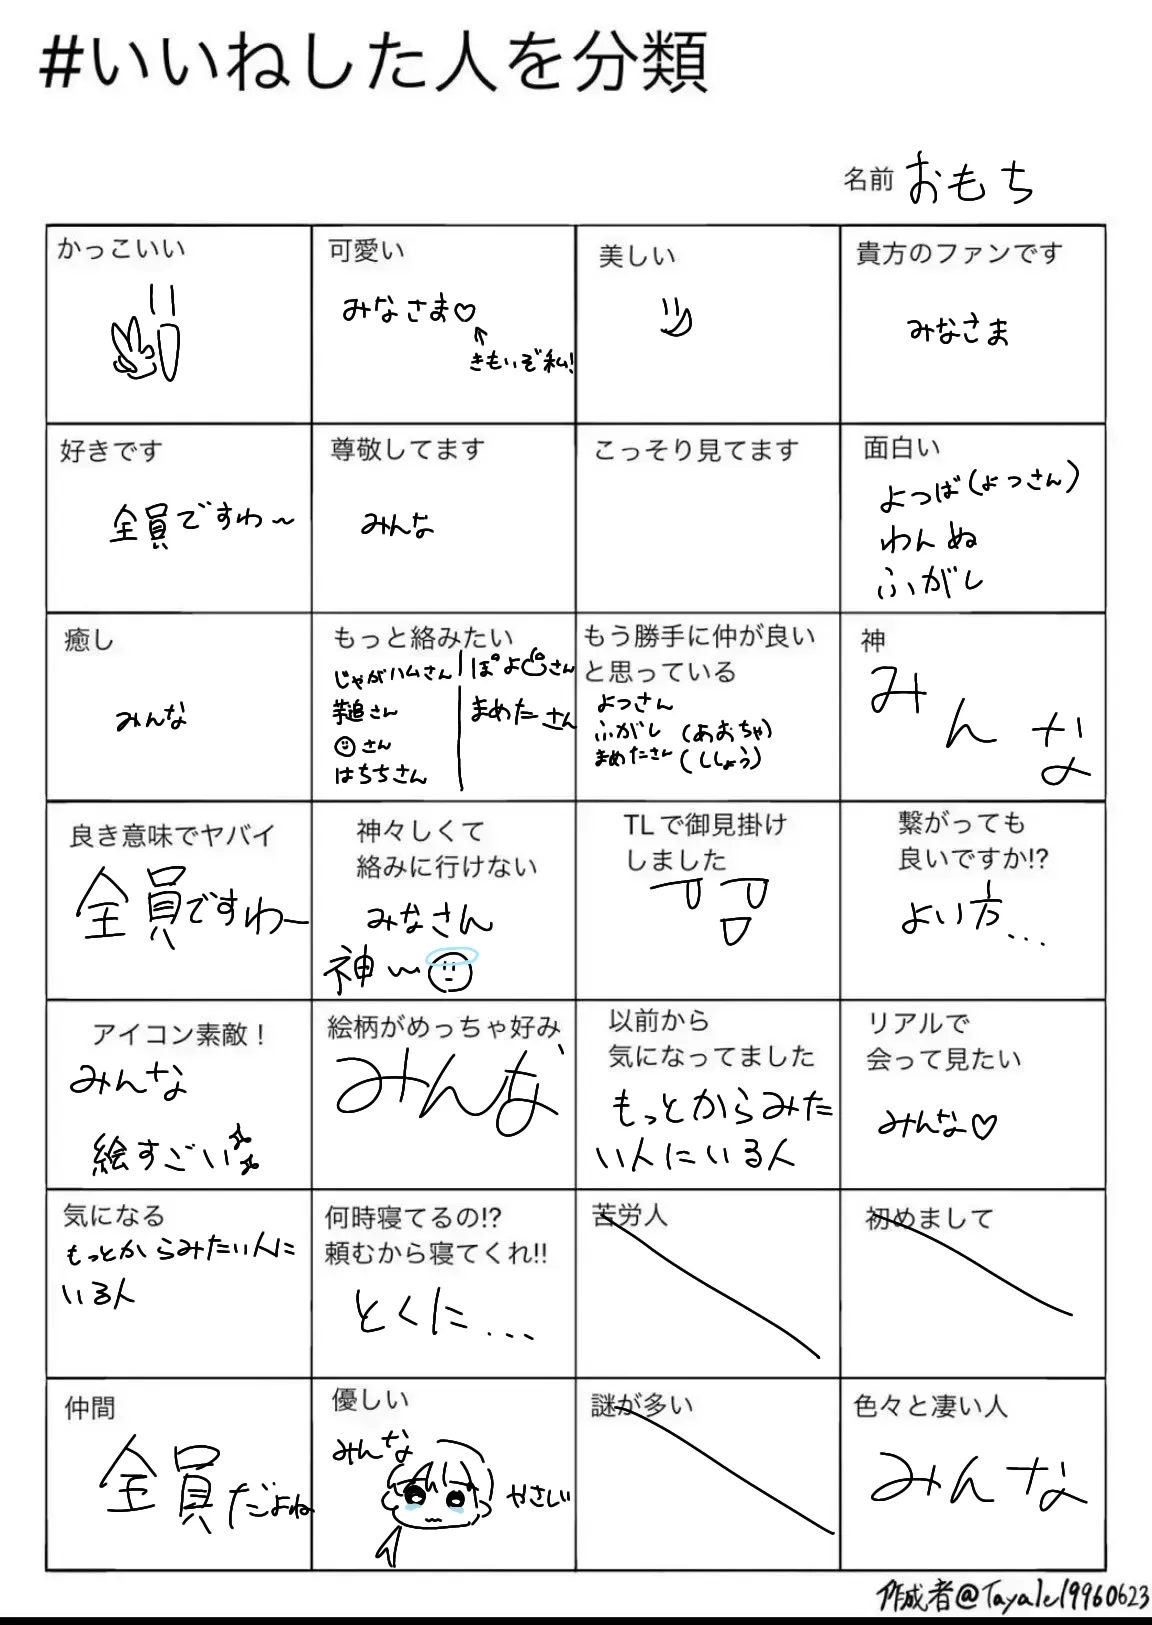 #いいねした人を分類
名前 おもち
かっこいい
可愛い
みなさま♡
↑
きもいぞ私!
美しい
貴方のファンです
みなさま
好きです
全員ですわ〜
尊敬してます
みんな
こっそり見てます
面白い
よつば(よっさん)
わんぬ
ふがし
癒し
みんな
もっと絡みたい
じゃがハムさん
さん
さん
はちちさん
ぽよ さん
まめたさん
もう勝手に仲が良い
と思っている
よっさん
ふがし (あおちゃ)
まめたさん (ししょう)
神
みんな
良き意味でヤバイ
全員ですわー
神々しくて
絡みに行けない
みなさん
神〜
TLで御見掛け
しました
繋がっても
良いですか!?
よい方...
アイコン素敵!
みんな
絵すごい
絵柄がめっちゃ好み
みんな
以前から
気になってました
もっとからみた
い人にいる人
リアルで
会って見たい
みんな♡
気になる
もっとからみたい人に
いる人
何時寝てるの!?
頼むから寝てくれ!!
とくに...
苦労人
初めまして
仲間
全員だよね
優しい
みんな
やさしい
謎が多い
色々と凄い人
みんな
作成者@Tayale19960623